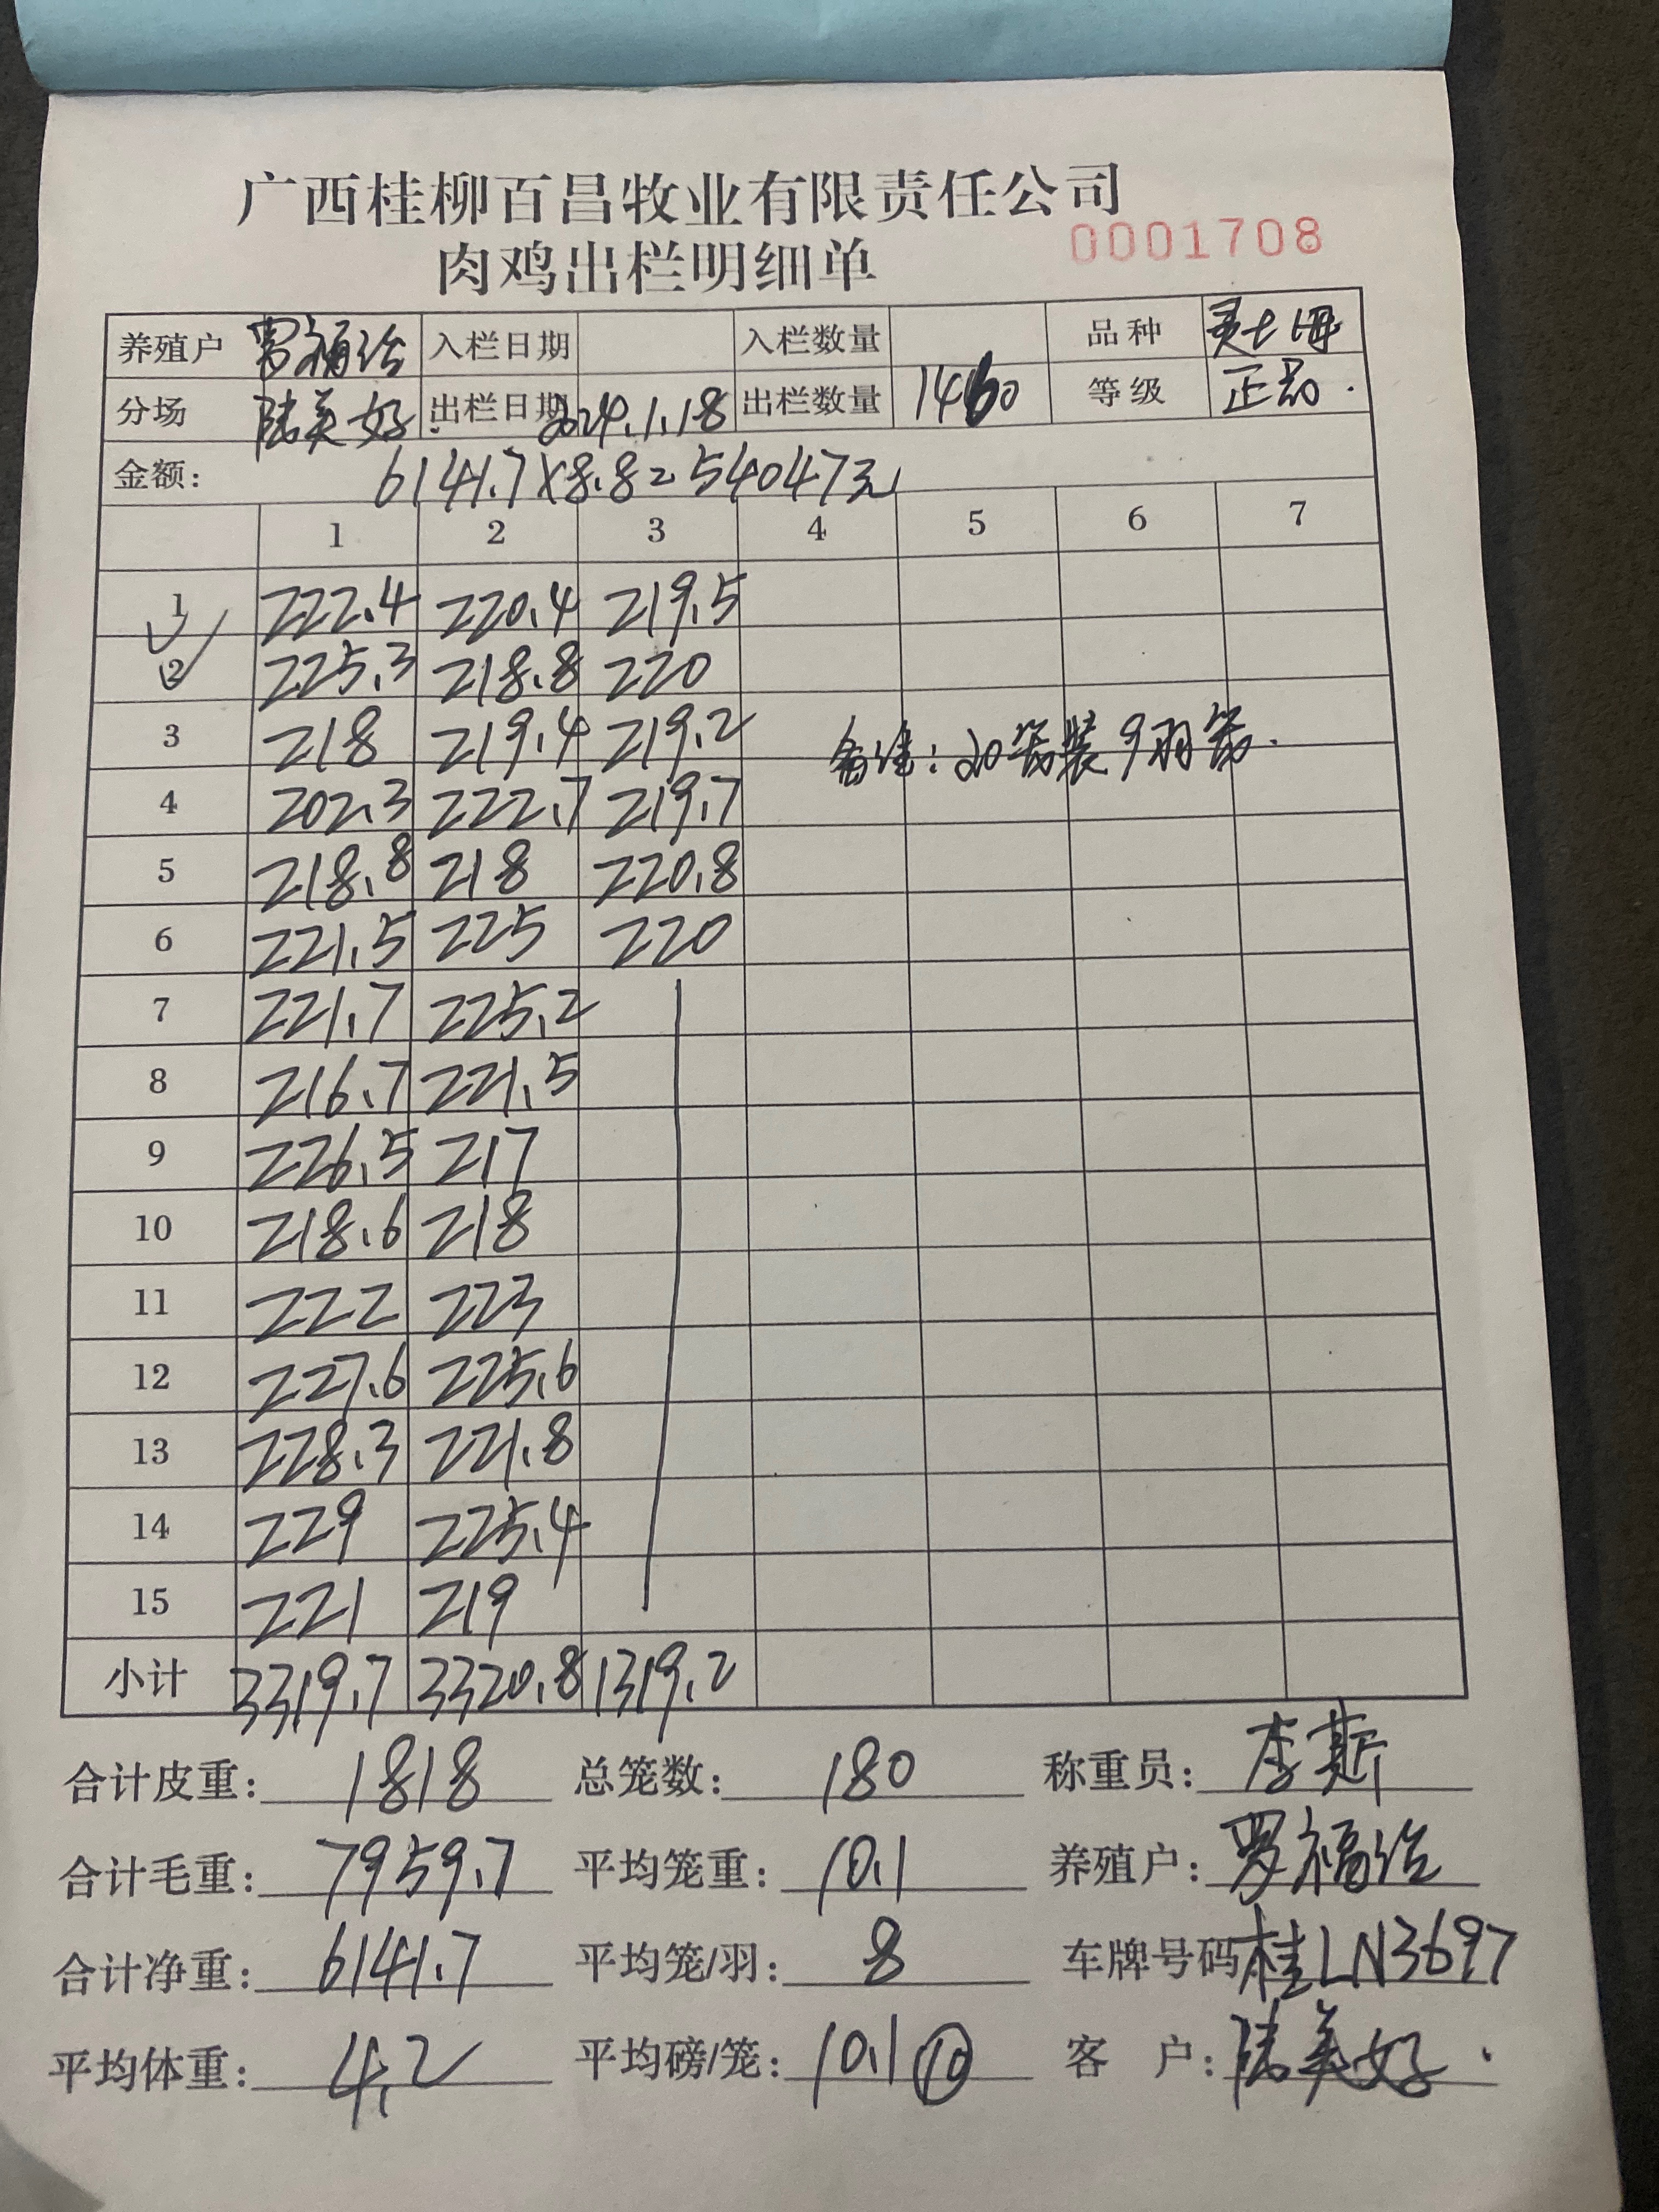 广西桂柳百昌牧业有限责任公司
肉鸡出栏明细单 0001708
养殖户 罗福治 入栏日期 入栏数量 品种 土
分场 陆美好 出栏日期 2024.1.18 出栏数量 1460 等级 正品.
金额: 6141.7×8.8=54047元
1 2 3 4 5 6 7
1 222.4 220.4 219.5
2 225.3 218.8 220
3 218 219.4 219.2 备注:20笼装9羽笼.
4 202.3 222.7 219.7
5 218.8 218 220.8
6 221.5 225 220
7 221.7 225.2
8 216.7 221.5
9 226.5 217
10 218.6 218
11 222 223
12 227.6 225.6
13 228.3 221.8
14 229 225.4
15 221 219
小计 3319.7 3320.8 1319.2
合计皮重: 1818 总笼数: 180 称重员: 李
合计毛重: 7959.7 平均笼重: 10.1 养殖户: 罗福治
合计净重: 6141.7 平均笼/羽: 8 车牌号码 桂LN3697
平均体重: 4.2 平均磅/笼: 10.1 ⑩ 客 户: 陆美好.